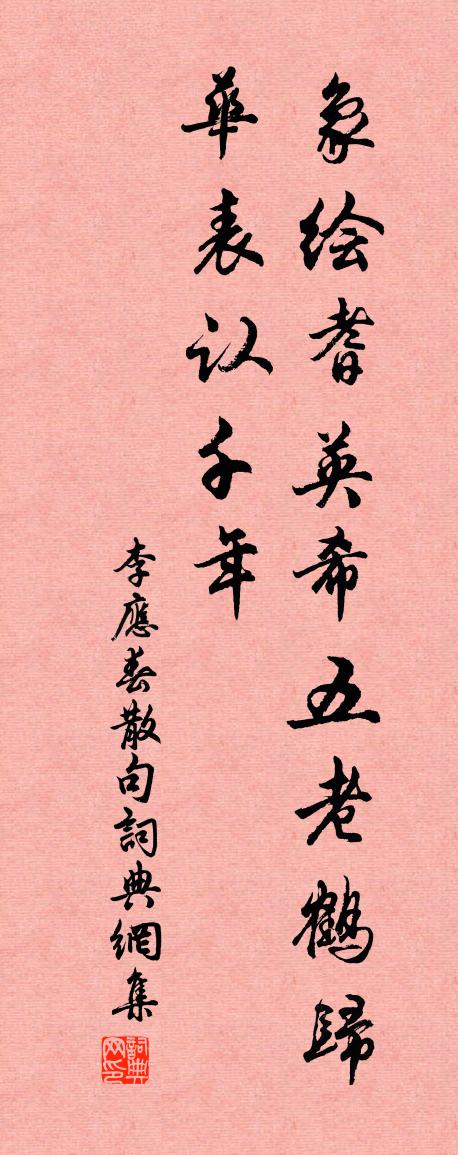 象绘耆英希五老鹤歸
華表认千年
李應春散句詞典網集
詞典网印